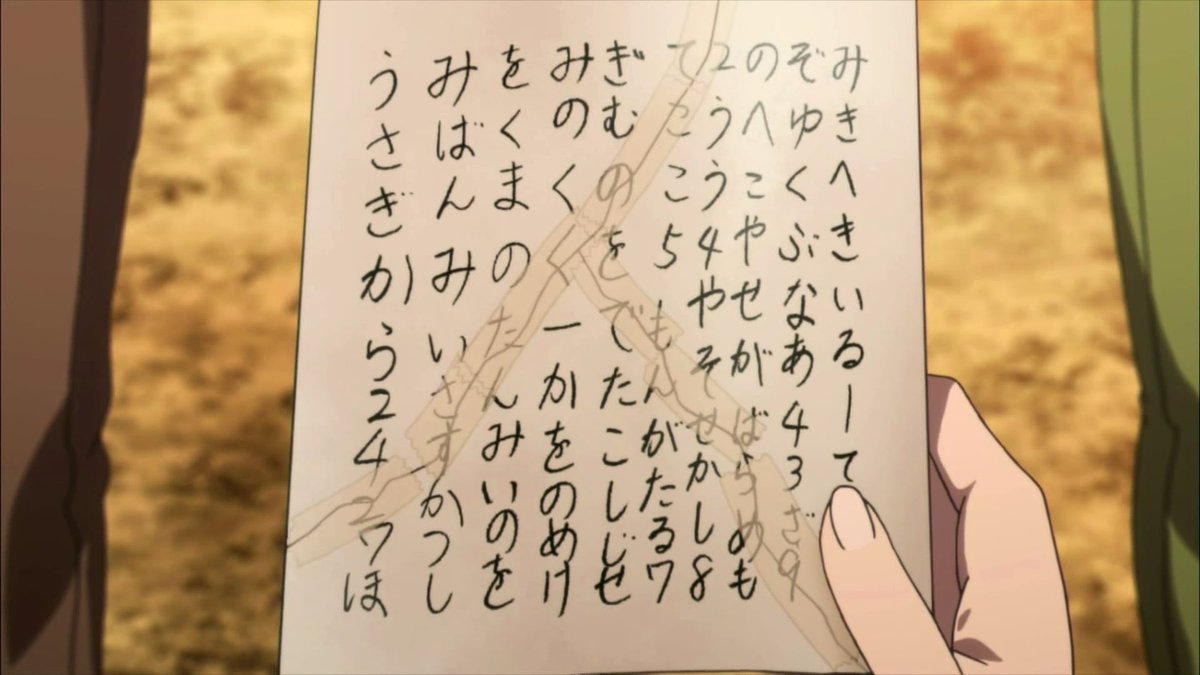 みきへきいるーて
ぞゆくぶなあ43ざ9
のへこやせがばらめも
2うう4やそせかし8
てここ5もんがたる7
ぎむのをでたこしじせ
みのくく一かをのめけ
をくまのたんみいのを
みばんみいさすかつし
うさぎから2427ほ